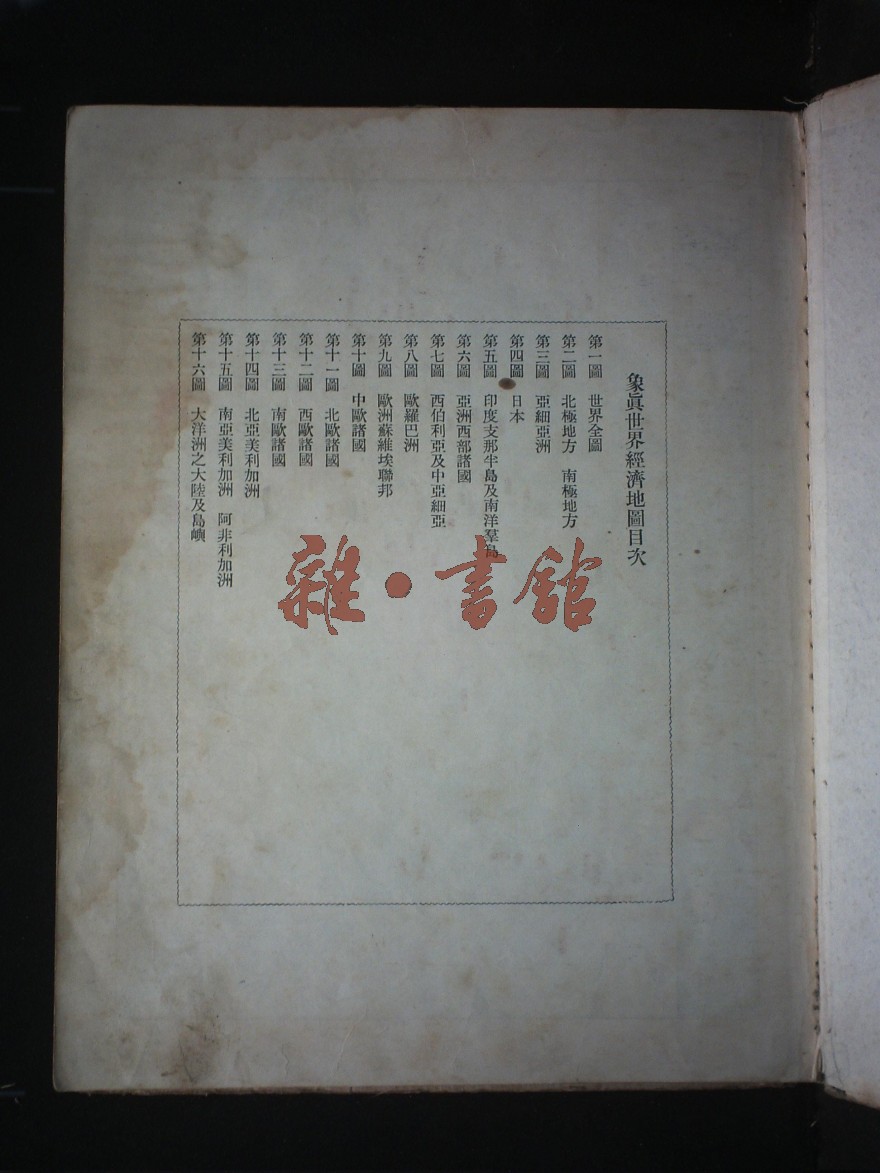 象眞世界經濟地圖目次
第一圖 世界全圖
第二圖 北極地方 南極地方
第三圖 亞細亞洲
第四圖 日本
第五圖 印度支那半島及南洋羣島
第六圖 亞洲西部諸國
第七圖 西伯利亞及中亞細亞
第八圖 歐羅巴洲
第九圖 歐洲蘇維埃聯邦
第十圖 中歐諸國
第十一圖 北歐諸國
第十二圖 西歐諸國
第十三圖 南歐諸國
第十四圖 北亞美利加洲
第十五圖 南亞美利加洲 阿非利加洲
第十六圖 大洋洲之大陸及島嶼
雜·書館